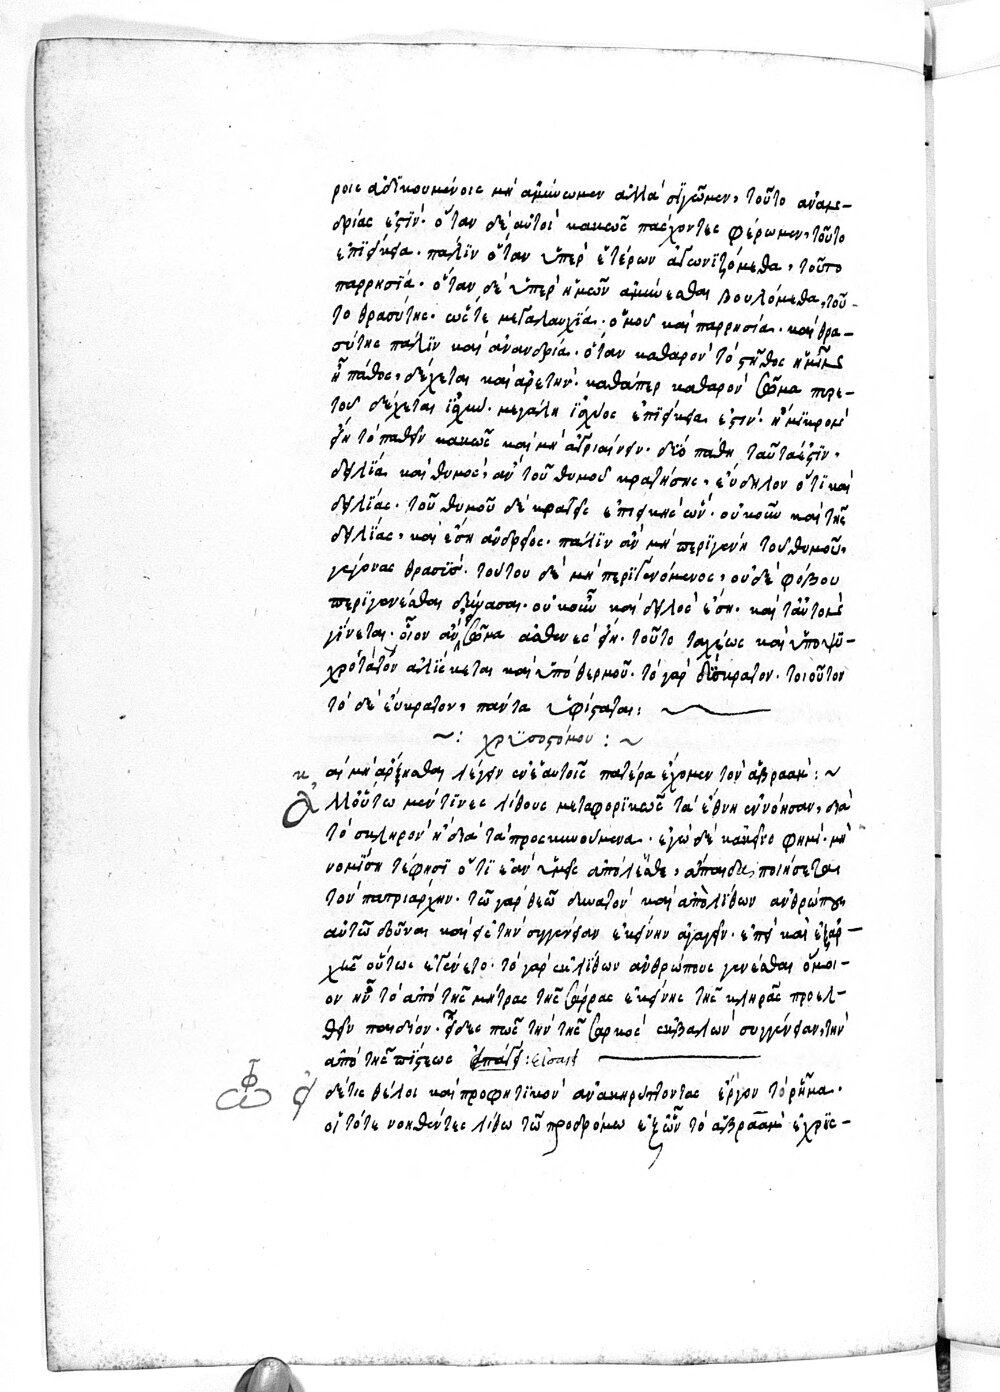 ροις ἀδικουμένοις μὴ ἀμύνωμεν ἀλλὰ σιγῶμεν, τοῦτο ἀναν-
δρίας ἐστίν· ὅταν δὲ αὐτοὶ κακῶς πάσχοντες φέρωμεν, τοῦτο
ἐπιείκεια· πάλιν ὅταν ὑπὲρ ἑτέρων ἀγωνιζόμεθα, τοῦτο
παρρησία· ὅταν δὲ ὑπὲρ ἡμῶν ἀμύνεσθαι βουλόμεθα, τοῦ-
το θρασύτης· ὥστε μεγαλαυχία· ὁμοῦ καὶ παρρησία· καὶ θρα-
σύτης πάλιν καὶ ἀνανδρία· ὅταν καθαρὸν τὸ στῆθος
ἢ πάθος, δέχεται καὶ ἀρετήν· καθάπερ καθαρὸν σῶμα πυρε-
τοῦ δέχεται ἰσχύν· μεγάλη ἰσχύος ἐπιείκεια ἐστίν·
τὸ παθεῖν κακῶς καὶ μὴ ἀγριαίνειν· διὸ πάθη ταῦτα ἐστίν,
δειλία καὶ θυμός, ἂν τοῦ θυμοῦ κρατήσης, εὔδηλον ὅτι καὶ
δειλίας· τοῦ θυμοῦ δὲ κρατεῖς ἐπιεικὴς ὤν· οὐκοῦν καὶ τῆς
δειλίας, καὶ ἔση ἀνδρεῖος· πάλιν ἂν μὴ περιγένη τοῦ θυμοῦ,
γέγονας θρασύς· τούτου δὲ μὴ περιγενόμενος, οὐδὲ φόβου
περιγενέσθαι δυνάσαι· οὐκοῦν καὶ δειλὸς ἔση· καὶ ταὐτὸν
γίνεται· οἷον ἂν σῶμα ἀσθενὲς ᾖ· τοῦτο ταχέως καὶ ὑπὸ ψυ-
χροτάτου ἁλίσκεται καὶ ὑπὸ θερμοῦ· τὸ γὰρ δύσκρατον· τοιοῦτον
τὸ δὲ εὔκρατον, πάντα ὑφίσταται:
~: χρυσοστόμου :~
και μὴ ἄρξησθαι λέγειν ἐν ἑαυτοῖς πατέρα ἔχομεν τὸν ἀβραάμ: ~
Ἀλλ' οὕτω μέν τινες λίθους μεταφορικῶς τὰ ἔθνη ἐνόησαν, διὰ
τὸ σκληρὸν ἢ διὰ τὰ προσκυνούμενα· ἐγὼ δὲ κἀκεῖνο φημί· μὴ
νομίση τέ φησι ὅτι ἐὰν ὑμεῖς ἀπόλεσθε, ἄπαιδα ποιήσεται
τὸν πατριάρχην· τῶ γὰρ θεῶ δυνατὸν καὶ ἀπὸ λίθων ἀνθρώπους
αὐτῶ δοῦναι καὶ εἰς τὴν συγγένειαν ἐκείνην ἀγαγεῖν· ἐπεὶ καὶ ἐξαρ-
χῆς οὕτως ἐγένετο· τὸ γὰρ ἐκ λίθων ἀνθρώπους γενέσθαι ὅμοι-
ον ἦν τὸ ἀπὸ τῆς μήτρας τῆς σάρρας ἐκείνης τῆς σκληρᾶς προελ-
θεῖν παιδίον· εἶδες πῶς τὴν τῆς σαρκὸς ἐκβαλὼν συγγένειαν, τὴν
ἀπὸ τῆς πίστεως
εἰ δέ τις θέλοι καὶ προφητικὸν ἀνακηρύττοντας ἔργον τὸ ῥῆμα·
οἱ τότε νοηθέντες λίθω τῶ προδρόμω ἐξ ὧν τὸ ἀβραὰμ ἐχρῆς-